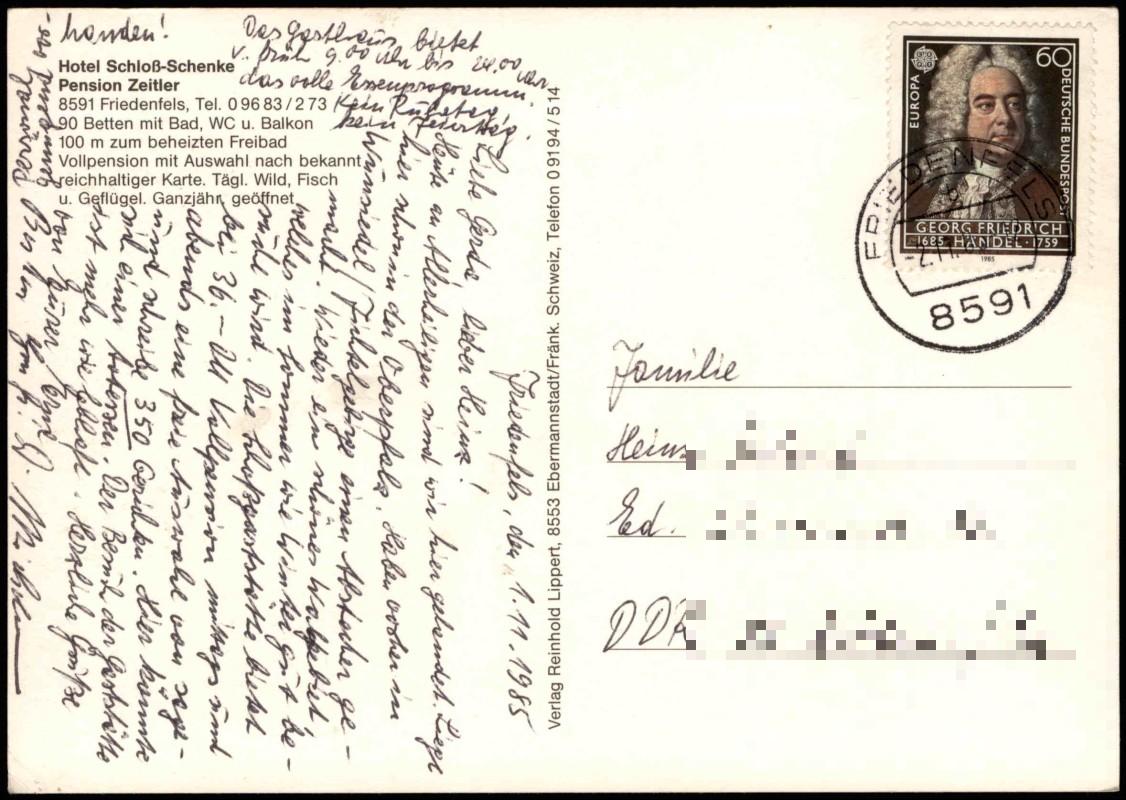 Hotel Schloß-Schenke
Pension Zeitler
8591 Friedenfels, Tel. 0 96 83 / 2 73
90 Betten mit Bad, WC u. Balkon
100 m zum beheizten Freibad
Vollpension mit Auswahl nach bekannt
reichhaltiger Karte. Tägl. Wild, Fisch
u. Geflügel. Ganzjähr. geöffnet
Das Gasthaus bietet
v. früh 9.00 Uhr bis 24.00 Uhr
das volle Essenprogramm.
Kein Ruhetag,
kein Feiertag.
Friedenfels, den 1.11.1985
Liebe Gerda, lieber Heinz!
Heute an Allerheiligen sind wir hier gelandet. Liegt
hier schon in der Oberpfalz. Haben vorher in
Wunsiedel / Fichtelgebirge einen Abstecher ge-
macht. Wieder ein schönes Waldgebiet,
welches im Sommer wie Winter gut be-
sucht wird. Die Schloßgaststätte bietet
bei 36.- DM Vollpension mittags und
abends eine freie Auswahl von sage
und schreibe 350 Gerichten. Hier könnte
mit einer
Der Besuch der Gaststätte
ist mehr wie gefüllt. Herzliche Grüße
von
handen!
Verlag Reinhold Lippert, 8553 Ebermannstadt/Fränk. Schweiz, Telefon 0 91 94 / 5 14
EUROPA
60
DEUTSCHE BUNDESPOST
GEORG FRIEDRICH
1685 · HÄNDEL · 1759
1985
FRIEDENFELS
8591
Familie
Heinz
Ed.
DDR